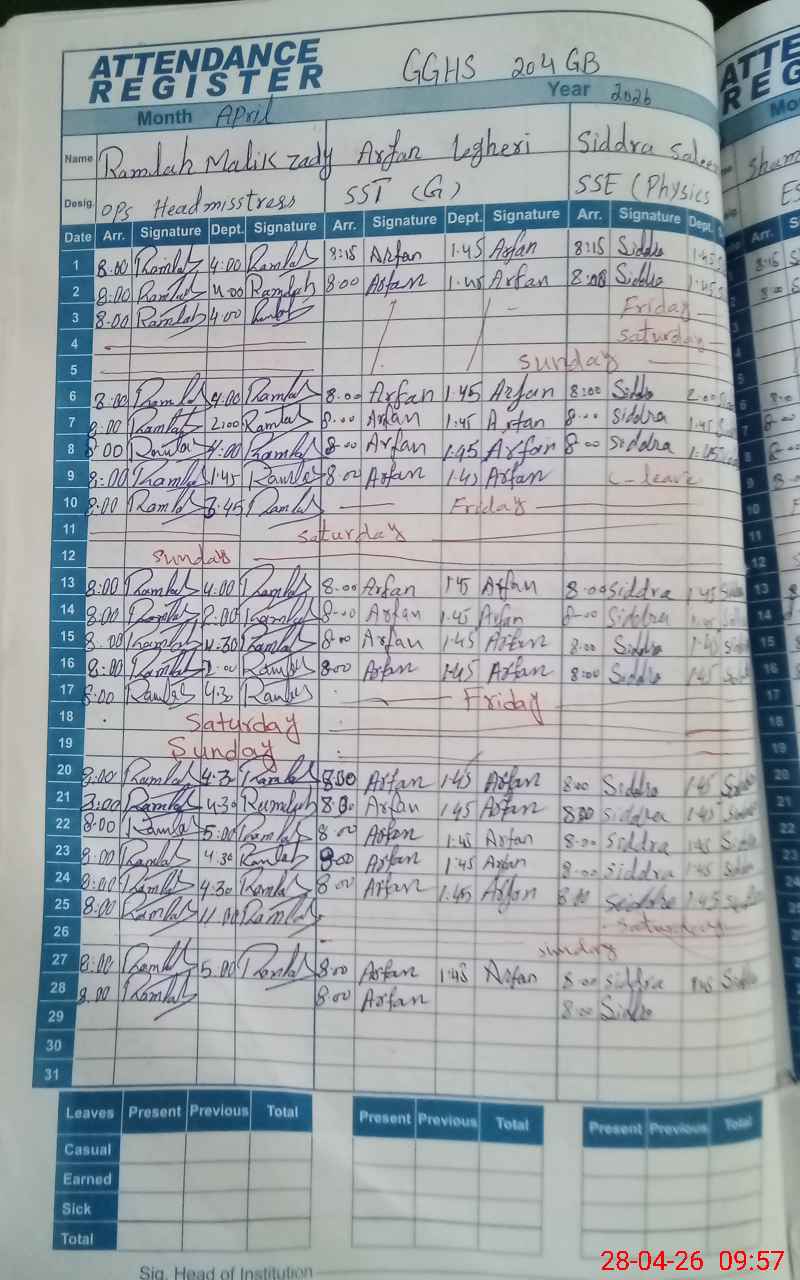 ATTENDANCE REGISTER GGHS 204 GB
Month April Year 2026
Name Ramlah Malik zady Arfan legheri Siddra Saleem
Desig. OPs Headmisstress SST (G) SSE (Physics
Date Arr. Signature Dept. Signature Arr. Signature Dept. Signature Arr. Signature Dept.
1 8:00 Ramlah 4:00 Ramlah 8:15 Arfan 1:45 Arfan 8:15 Siddra
2 8:00 Ramlah 4:00 Ramlah 8:00 Arfan 1:45 Arfan 8:00 Siddra
3 8:00 Ramlah 4:00 Ramlah Friday
4 saturday
5 sunday
6 8:00 Ramlah 4:00 Ramlah 8:00 Arfan 1:45 Arfan 8:00 Siddra 2:00
7 8:00 Ramlah 2:00 Ramlah 8:00 Arfan 1:45 Arfan 8:00 Siddra 1:45
8 8:00 Ramlah 4:00 Ramlah 8:00 Arfan 1:45 Arfan 8:00 Siddra 1:45
9 8:00 Ramlah 1:45 Ramlah 8:00 Arfan 1:45 Arfan C-leave
10 8:00 Ramlah 3:45 Ramlah Friday
11 saturday
12 sunday
13 8:00 Ramlah 4:00 Ramlah 8:00 Arfan 1:45 Arfan 8:00 Siddra 1:45
14 8:00 Ramlah 2:00 Ramlah 8:00 Arfan 1:45 Arfan 8:00 Siddra
15 8:00 Ramlah 4:30 Ramlah 8:00 Arfan 1:45 Arfan 8:00 Siddra 1:45
16 8:00 Ramlah Ramlah 8:00 Arfan 1:45 Arfan 8:00 Siddra 1:45
17 8:00 Ramlah 4:30 Ramlah Friday
18 Saturday
19 Sunday
20 8:00 Ramlah 4:30 Ramlah 8:00 Arfan 1:45 Arfan 8:00 Siddra 1:45
21 8:00 Ramlah 4:30 Ramlah 8:00 Arfan 1:45 Arfan 8:00 Siddra 1:45
22 8:00 Ramlah 5:00 Ramlah 8:00 Arfan 1:45 Arfan 8:00 Siddra 1:45
23 8:00 Ramlah 4:30 Ramlah 8:00 Arfan 1:45 Arfan 8:00 Siddra 1:45
24 8:00 Ramlah 4:30 Ramlah 8:00 Arfan 1:45 Arfan 8:00 Siddra 1:45
25 8:00 Ramlah 11:00 Ramlah saturday
26 sunday
27 8:00 Ramlah 5:00 Ramlah 8:00 Arfan 1:45 Arfan 8:00 Siddra 1:45
28 8:00 Ramlah 8:00 Arfan 8:00 Siddra
29
30
31
Leaves Present Previous Total Present Previous Total Present Previous Total
Casual
Earned
Sick
Total
Sig. Head of Institution
28-04-26 09:57